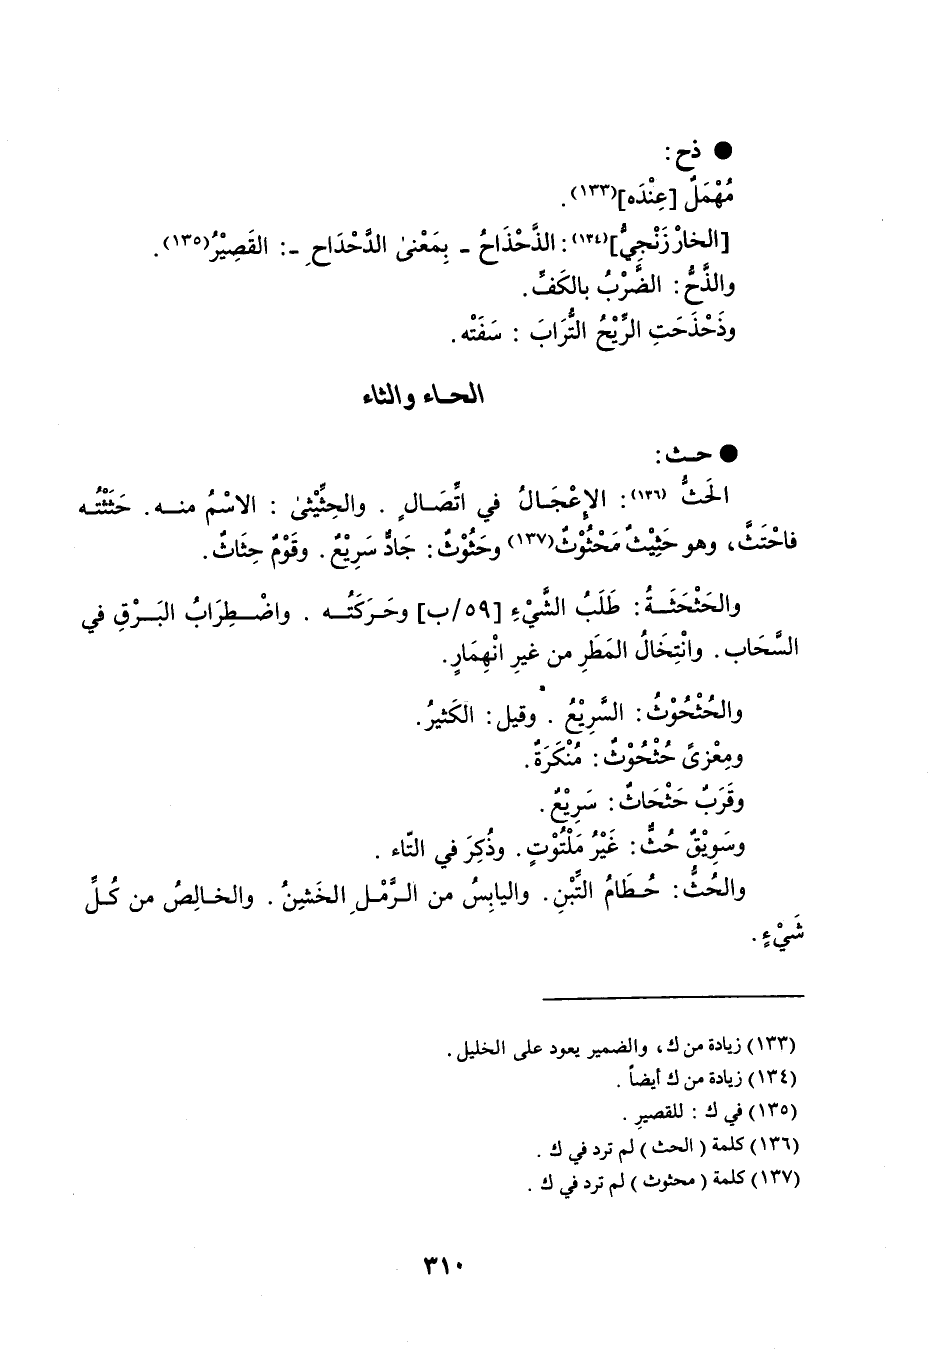 ● ذح :
مُهْمَلٌ [عِنْدَه](١٣٣) .
[الخارْزَنْجِيُّ](١٣٤) : الذَّحْذَاحُ ـ بِمَعْنىٰ الدَّحْدَاحِ ـ : القَصِيْرُ(١٣٥) .
والذَّحُّ : الضَّرْبُ بالكَفِّ .
وذَحْذَحَتِ الرِّيْحُ التُّرَابَ : سَفَتْه .
الحاء والثاء
● حث :
الحَثُّ (١٣٦) : الإِعْجَالُ في اتِّصَالٍ . والحِثِّيْثىٰ : الاسْمُ منه . حَثَثْتُه
فاحْتَثَّ ، وهو حَثِيْثٌ مَحْثُوْثٌ(١٣٧) وحَثُوْثٌ : جَادٌّ سَرِيْعٌ . وقَوْمٌ حِثَاثٌ .
والحَثْحَثَةُ : طَلَبُ الشَّيْءِ [٥٩/ب] وحَرَكَتُه . واضْطِرَابُ البَرْقِ في
السَّحَاب . وانْتِخَالُ المَطَرِ من غيرِ انْهِمَارٍ .
والحُثْحُوْثُ : السَّرِيْعُ . وقيل : الكَثيرُ .
ومِعْزىً حُثْحُوْثٌ : مُنْكَرَةٌ .
وقَرَبٌ حَثْحَاثٌ : سَرِيْعٌ .
وسَوِيْقٌ حُثٌّ : غَيْرُ مَلْتُوْتٍ . وذُكِرَ في التّاء .
والحُثُّ : حُطَامُ التِّبْنِ . واليابِسُ من الرَّمْلِ الخَشِنُ . والخالِصُ من كُلِّ
شَيْءٍ .
(١٣٣) زيادة من ك ، والضمير يعود على الخليل .
(١٣٤) زيادة من ك أيضاً .
(١٣٥) في ك : للقصيرِ .
(١٣٦) كلمة ( الحث ) لم ترد في ك .
(١٣٧) كلمة ( محثوث ) لم ترد في ك .
٣١٠